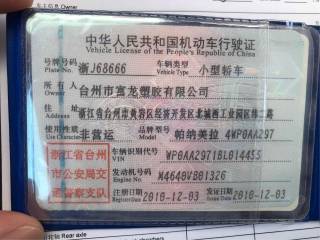 中华人民共和国机动车行驶证
Vehicle License of the People's Republic of China
号牌号码 浙J68666 车辆类型 小型轿车
Plate No. Vehicle Type
所有人 台州市富龙塑胶有限公司
Owner
住址 浙江省台州市黄岩区经济开发区北城西工业园区纬二路
Address
使用性质 非营运 品牌型号 帕纳美拉 4WP0AA297
Use Character Model
浙江省台州市公安局交通警察支队
车辆识别代号 WP0AA2971BL014455
VIN
发动机号码 M4640VB01326
Engine No.
注册日期 2010-12-03 发证日期 2010-12-03
Register Date Issue Date
Rear axle